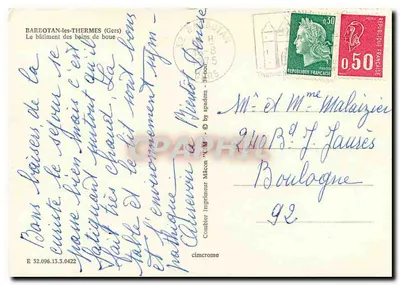 BARBOTAN-les-THERMES (Gers)
Le bâtiment des bains de boue
Bons baisers de la
cure le séjour se
passe bien mais c'est
fatigant surtout il
fait très chaud La
table et le lit sont bons
et l'environnement sym-
pathique
à Bientôt Denise
E 32.098.13.3.0422
Combier Imprimeur Mâcon "CIM" © by spadem
cimcrome
0,30
REPUBLIQUE FRANÇAISE
0,50
Mr et Mme Malaizier
240 Bd J. Jaurès
Boulogne
92